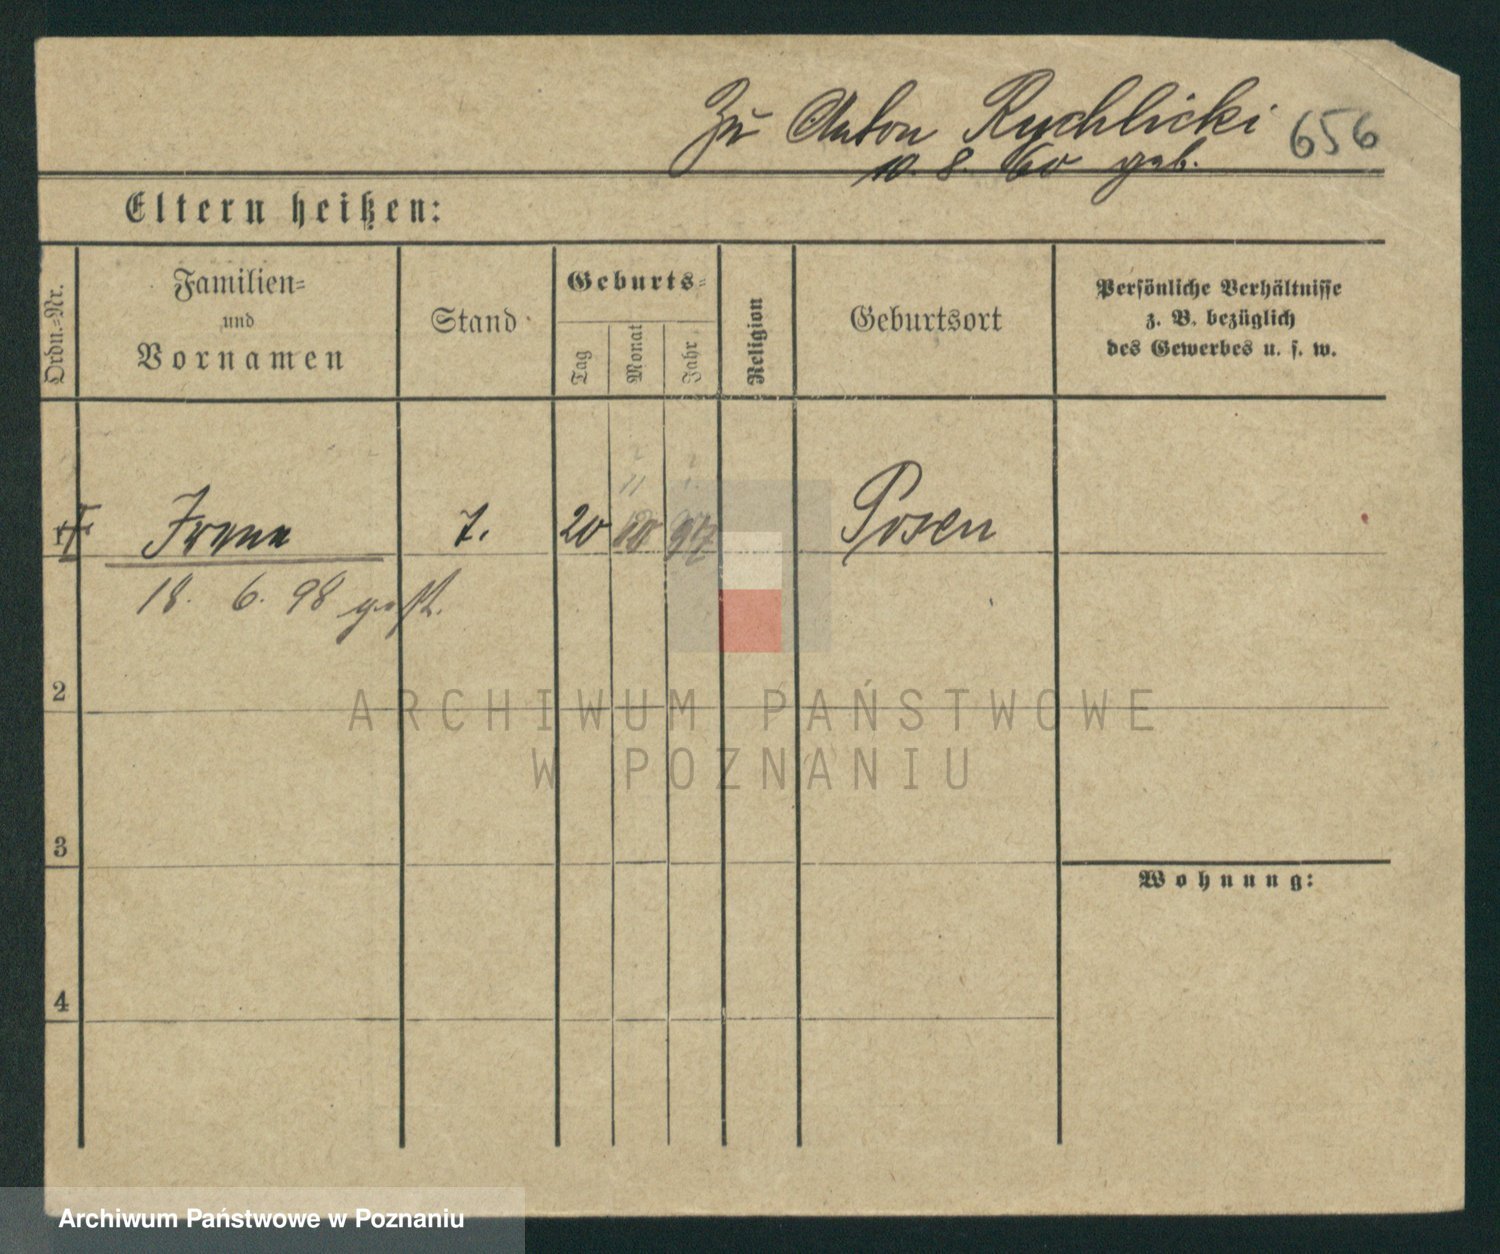 Zu Anton Rychlicki 656
10. 8. 60 geb.
Eltern heißen:
Ordn.-Nr.
Familien-
und
Vornamen
Stand
Geburts-
Tag
Monat
Jahr
Religion
Geburtsort
Persönliche Verhältnisse
z. B. bezüglich
des Gewerbes u. s. w.
Irene T. 20 10 97 Posen
18. 6. 98 gest.
2
ARCHIWUM PAŃSTWOWE
W POZNANIU
3
Wohnung:
4
Archiwum Państwowe w Poznaniu